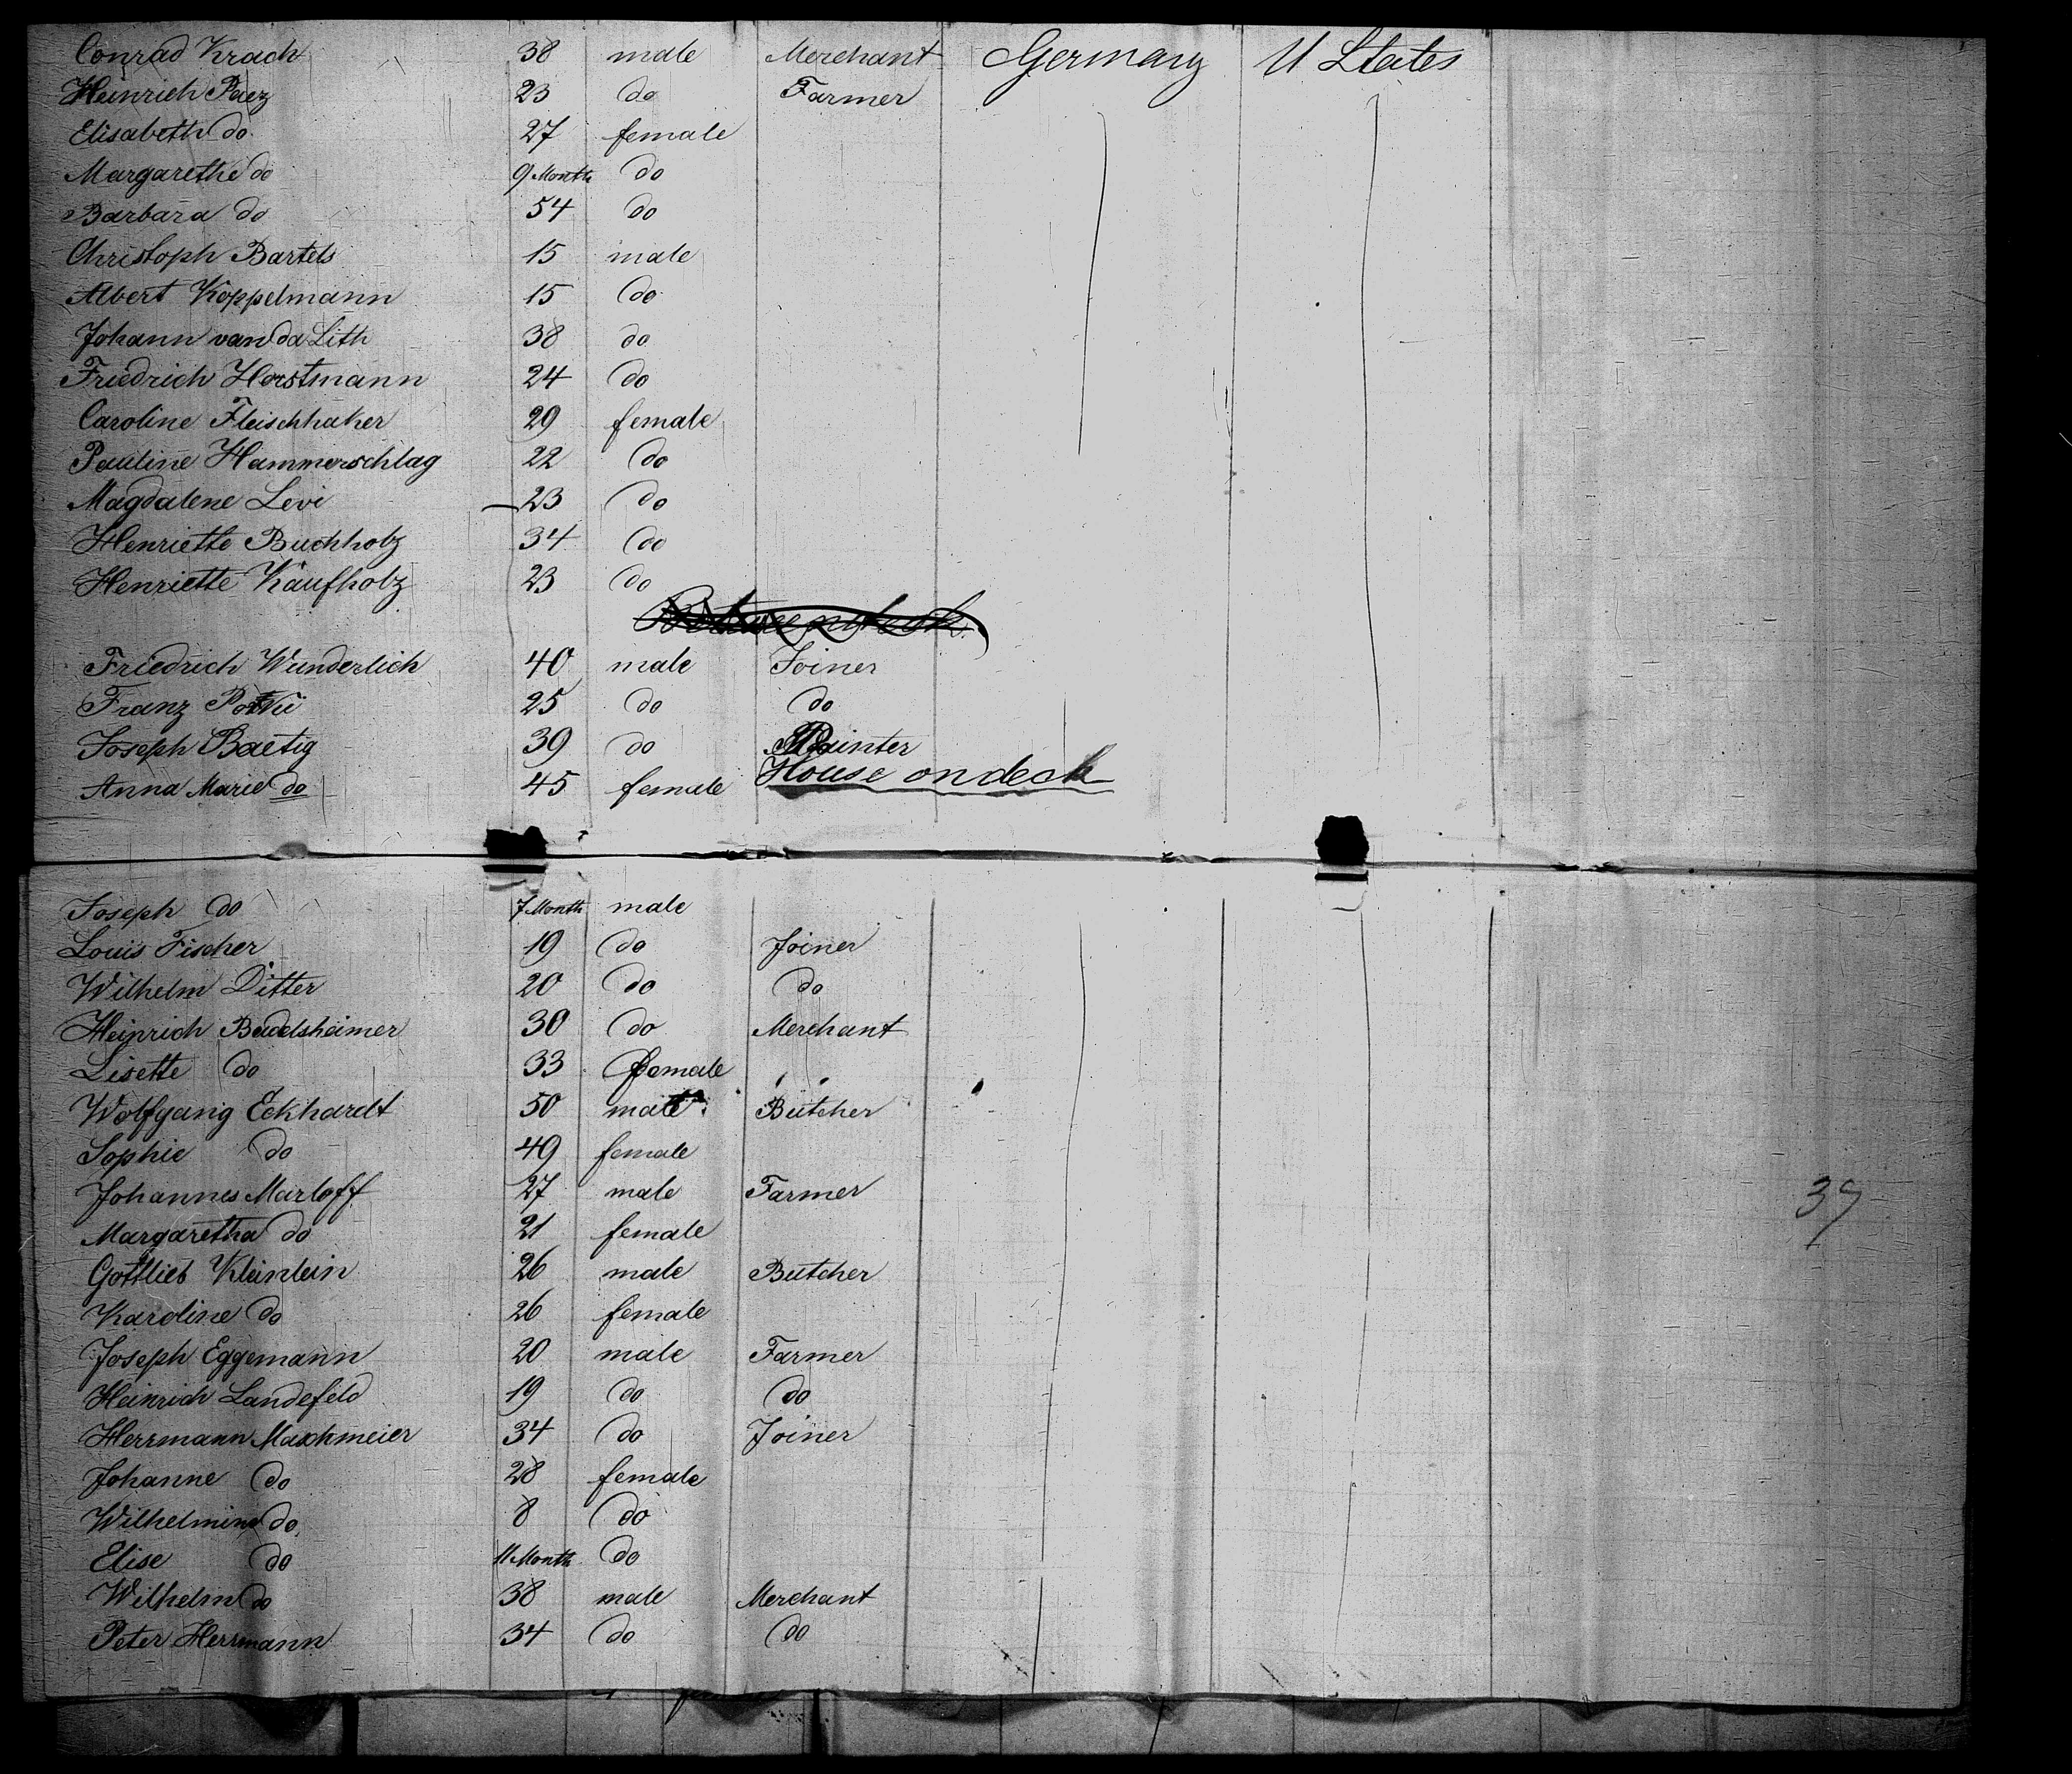 Conrad Krach 38 male Merchant Germany U States
Heinrich Paez 23 do Farmer
Elisabeth do 27 female
Margarethe do 9 Month do
Barbara do 54 do
Christoph Bartels 15 male
Albert Koppelmann 15 do
Johann van da Lith 38 do
Friedrich Horstmann 24 do
Caroline Fleischhaker 29 female
Pauline Hammerschlag 22 do
Magdalene Levi 23 do
Henriette Buchholz 34 do
Henriette Kaufholz 23 do
Friedrich Wunderlich 40 male Joiner
Franz 25 do do
Joseph Baetig 39 do Painter
House on deck
Anna Marie do 45 female
Joseph do 7 Month male
Louis Fischer 19 do Joiner
Wilhelm Ditter 20 do do
Heinrich Budelsheimer 30 do Merchant
Lisette do 33 female
Wolfgang Eckhardt 50 male Butcher
Sophie do 49 female
Johannes Marloff 27 male Farmer
Margaretha do 21 female
Gottlieb Kleinlein 26 male Butcher
Karoline do 26 female
Joseph Eggemann 20 male Farmer
Heinrich Landefeld 19 do do
Herrmann Maschmeier 34 do Joiner
Johanne do 28 female
Wilhelmine do 8 do
Elise do 11 Month do
Wilhelm do 38 male Merchant
Peter Herrmann 34 do do
39